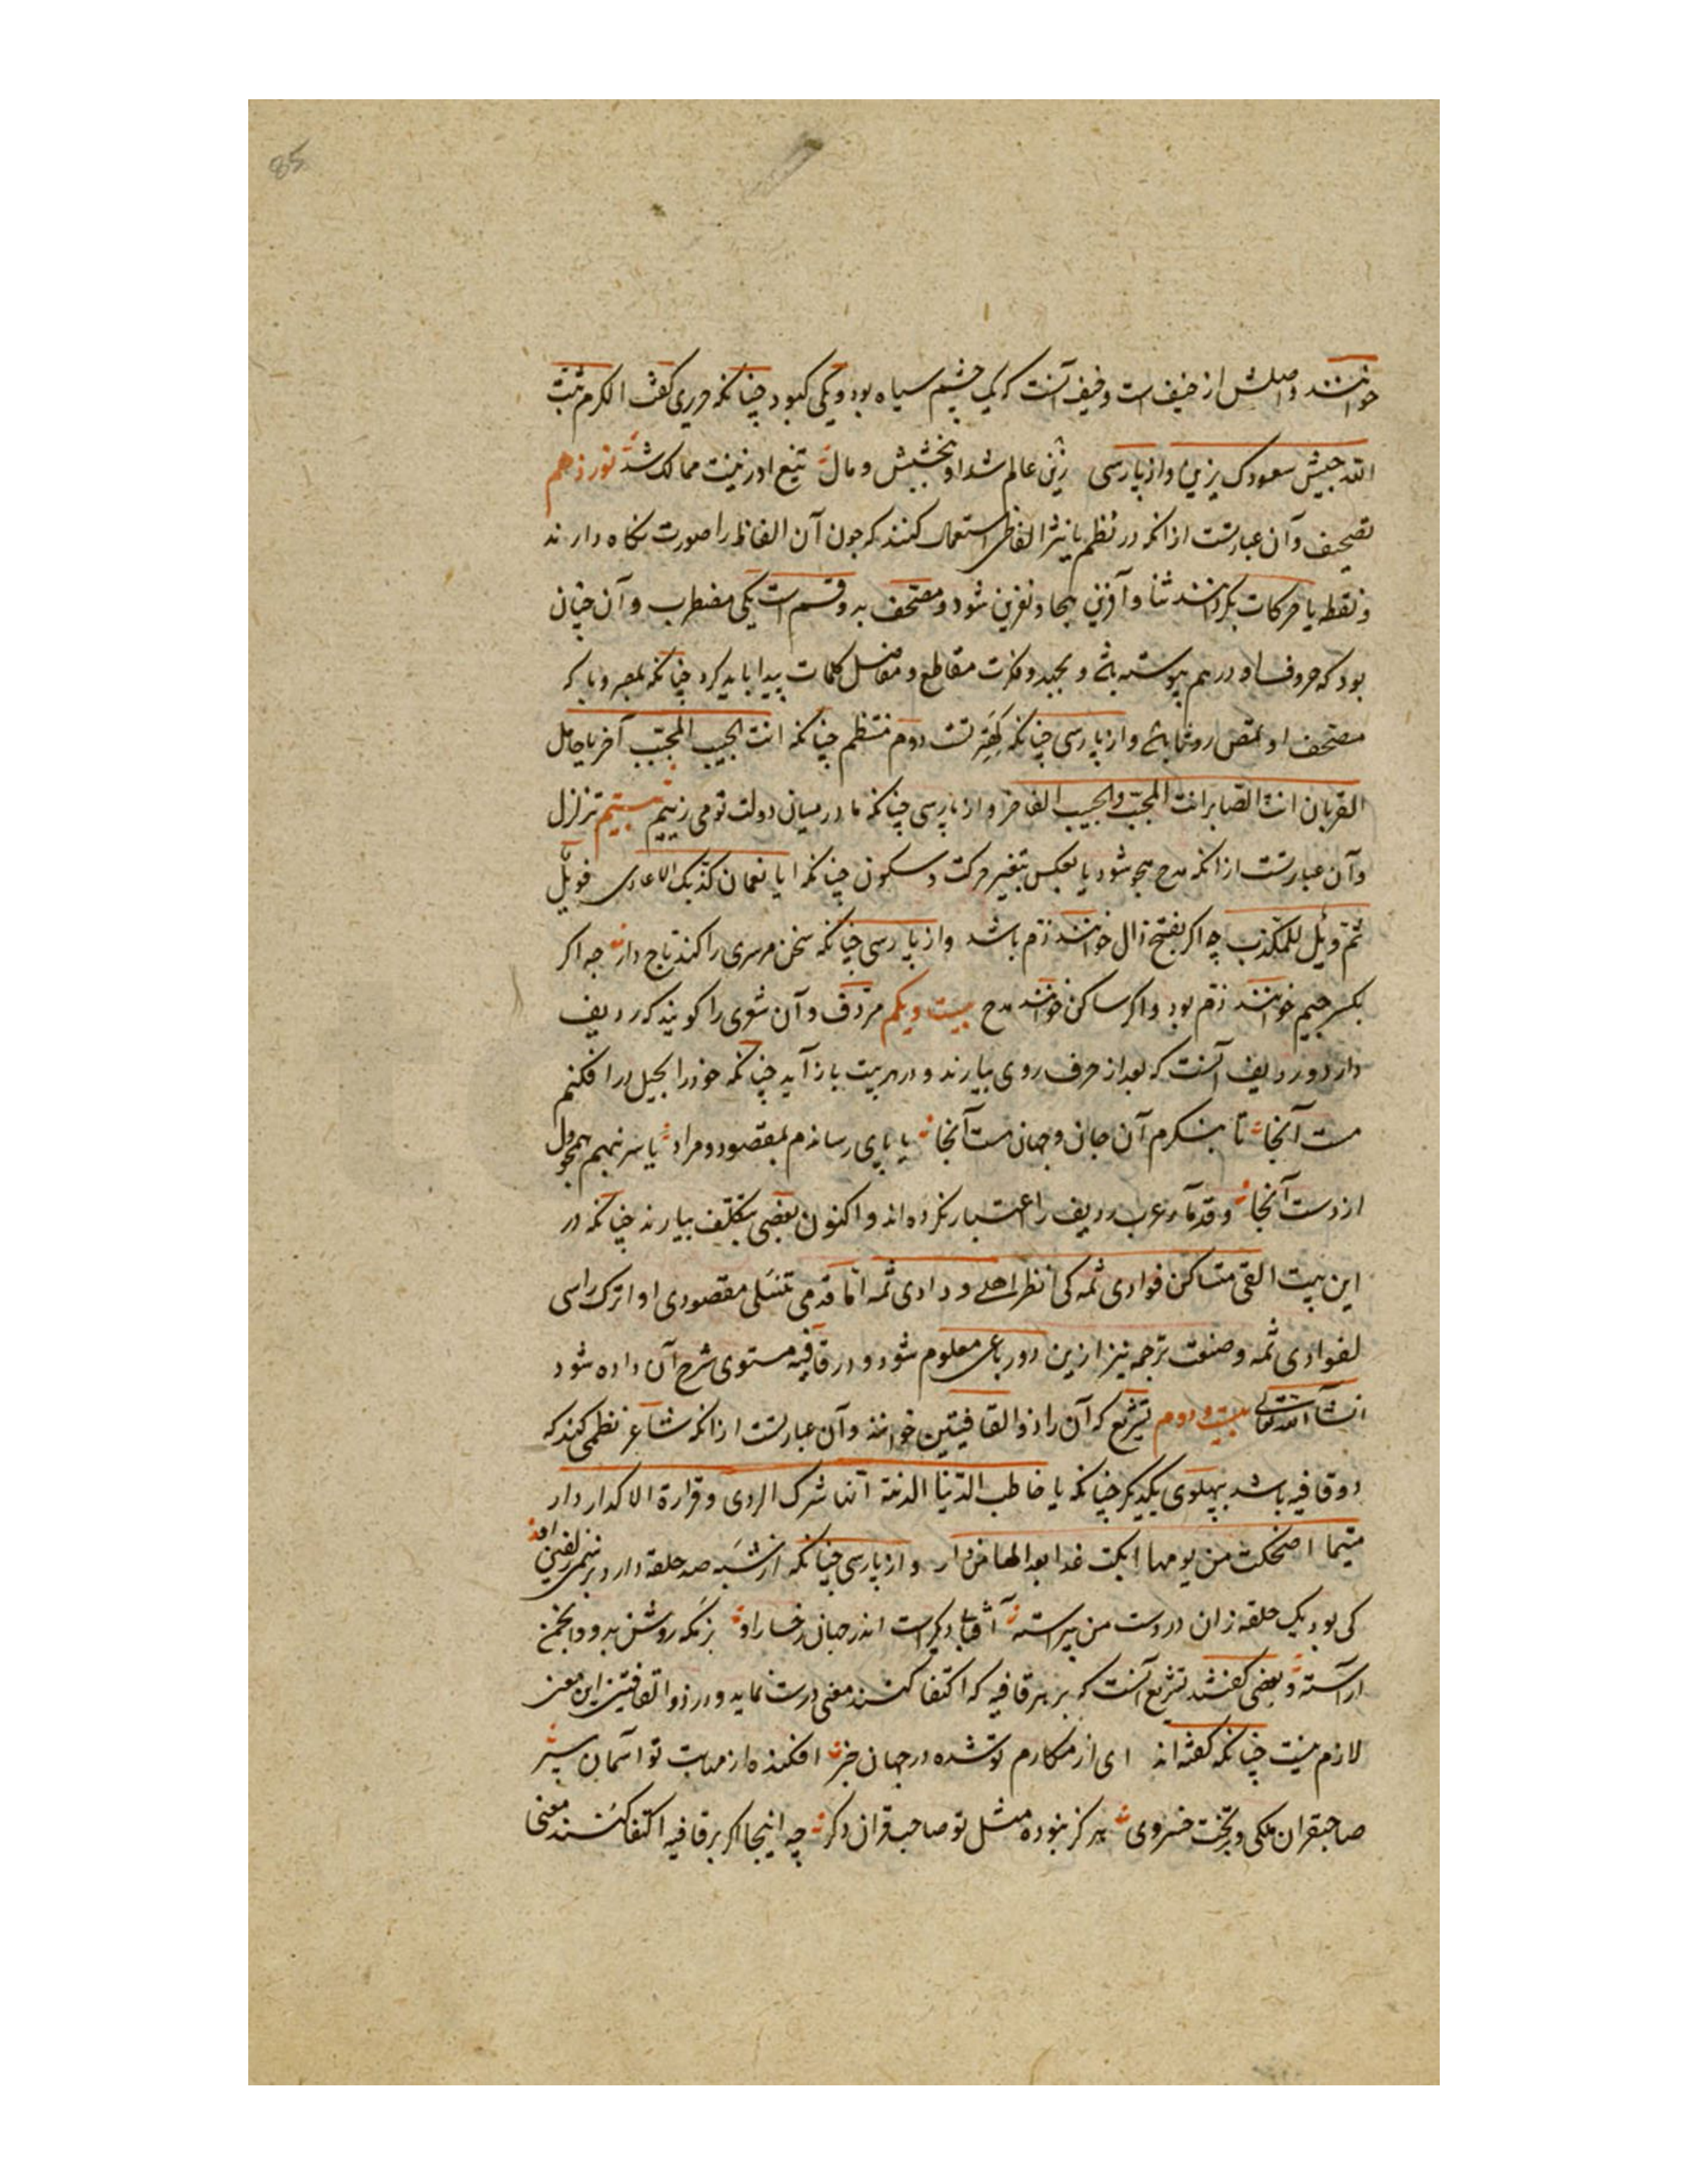 85
خوانند و اصلش از خیف است و خیف آنست که یک چشم سیاه بود و یکی کبود چنانکه حریری گفت الکرم ثبت
الله جیش سعودک یزین و از پارسی زین عالم شد او بخشیش و مال تیغ او زینت ممالک شد نوزدهم
تصحیف و آن عبارتست از آنکه در نظم یا نثر الفاظی استعمال کنند که چون آن الفاظ را صورت نگاه دارند
و نقطه یا حرکات بگردانند ثنا و آفرین هجا و نفرین شود و مصحف بدو قسم است یکی مضطرب و آن چنان
بود که حروف او در هم پیوسته باشد و بجد و فکرت مقاطع و مفاصل کلمات پیدا باید کرد چنانکه بصیر و با که
مصحف او باشد و از پارسی چنانکه تست دوم منتظم چنانکه انت الحبیب المحبب آخر با جامل
القربان انت الصابر انت المحب و الحبیب الفاخر و از پارسی چنانکه ما در میان دولت تو می زییم بیستم تزلزل
و آن عبارتست از آنکه مدح هجو شود یا بعکس بتغیر حرکت و سکون چنانکه ایا نعمان کذبک الاعادی فویل
ثم ویل للمکذب چه اگر بفتح ذال خوانند ذم باشد و از پارسی چنانکه سخن هر سری را کند تاج دار چه اگر
بکسر جیم خوانند ذم بود و اگر ساکن خوانند مدح بیست و یکم مردف و آن شعری را گویند که ردیف
دارد و ردیف آنست که بعد از حرف روی بیارند و در هر بیت باز آید چنانکه خود را بحیل در افکنم
مست آنجا تا بنگرم آن جان و جهان هست آنجا یا پای رساندم بمقصود و مراد یا سر نهم همچو دل
از دست آنجا و قدماء عرب ردیف را اعتبار نکرده اند و اکنون بعضی بتکلف بیارند چنانکه در
این بیت القی متساکن فوادی ثمه کی انظر اهلی و دادی ثمه اما قدمی تنسلی مقصودی او اترک راسی
لفوادی ثمه و صنعت ترجمه نیز ازین دو رباعی معلوم شود و در قافیه مستوی شرح آن داده شود
انشاء الله تعالی بیست و دوم تشریع که آن را ذو القافیتین خوانند و آن عبارتست از آنکه شاعر نظمی کند که
دو قافیه باشد بپهلوی یکدیگر چنانکه یا خاطب الدنیا الدنیة انها شرک الردی و قرارة الاکدار دار
متیما اضحکت من یومها ابکت غدا بعدا لها من دار و از پارسی چنانکه از شبه صد حلقه دارد بر سمن زلفین او
کی بود یک حلقه زان در دست من پیراسته آفتاب دیگرست اندر جهان رخسار او زنکه روشن بدو و انجمن
آراسته و بعضی گفتند تشریع آنست که بر هر قافیه که اکتفا کنند معنی درست نماید و در ذو القافتین این معنی
لازم نیست چنانکه گفته اند ای از مکارم تو شده در جهان خبر افکنده از مهابت تو آسمان سپر
صاحبقران ملکی و بر تخت خسروی هرگز نبوده مثل تو صاحبقران دگر چه اینجا اگر بر قافیه اکتفا کنند معنی